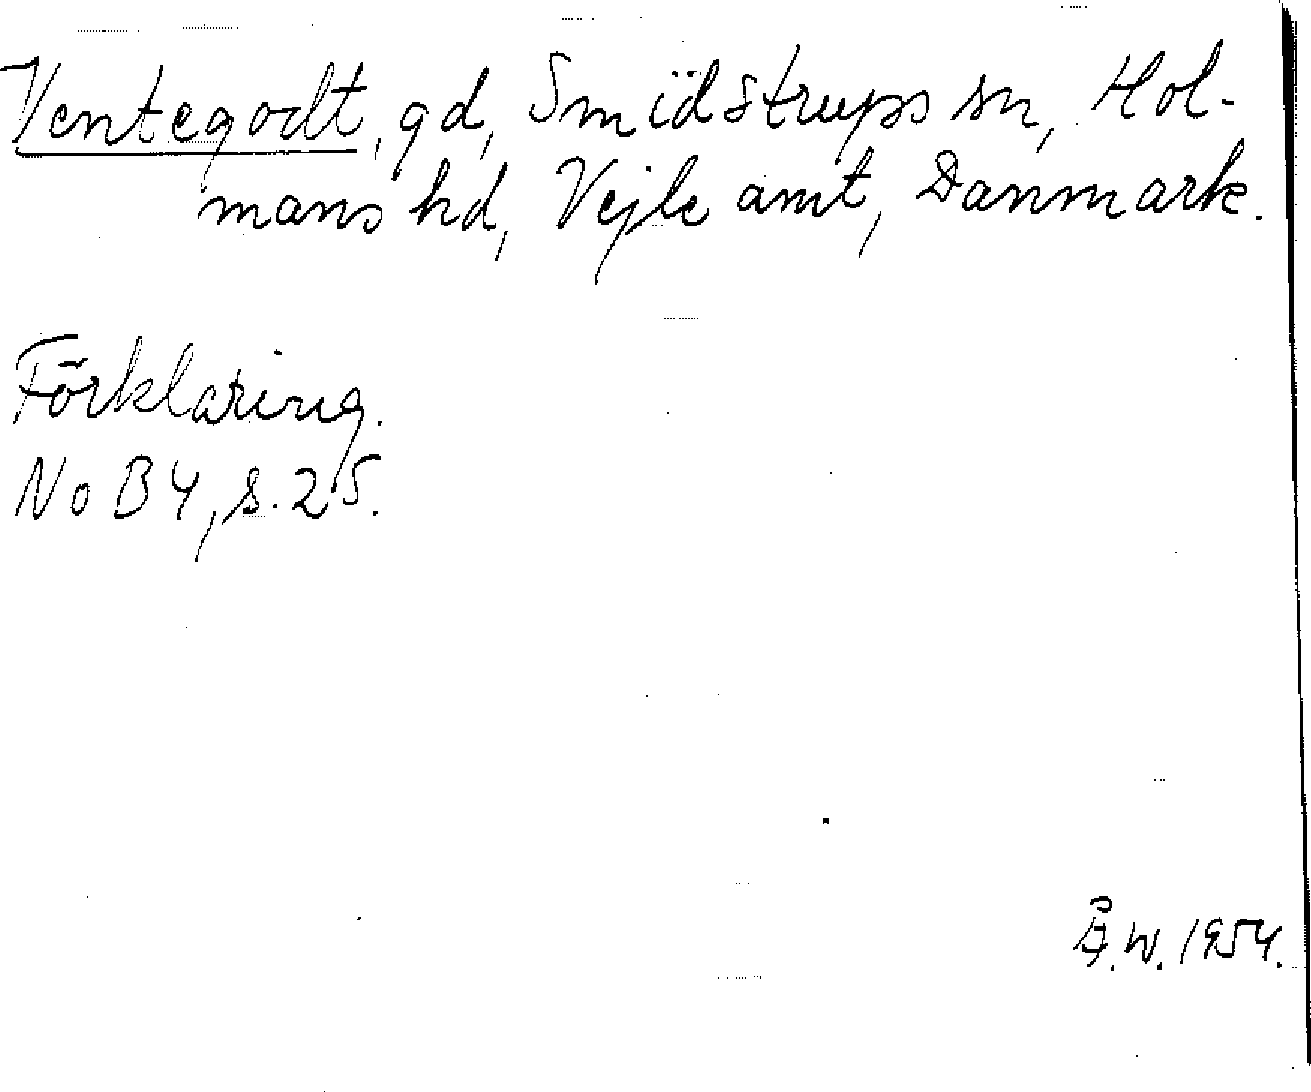 Ventegodt, gd, Smidstrups sn, Hol-
mans hd, Vejle amt, Danmark.
Förklaring.
NoB 4, s. 25.
Å.W. 1954.